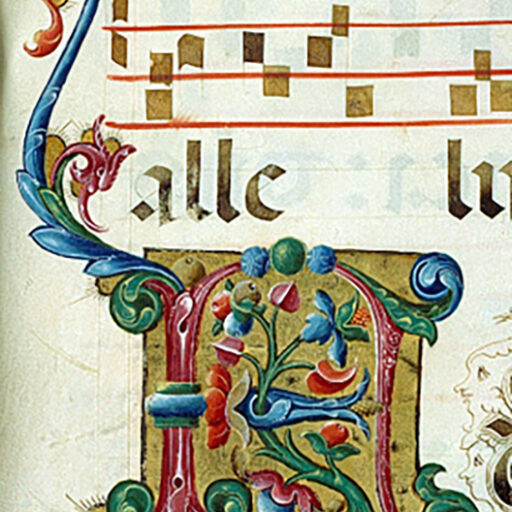 alle lu